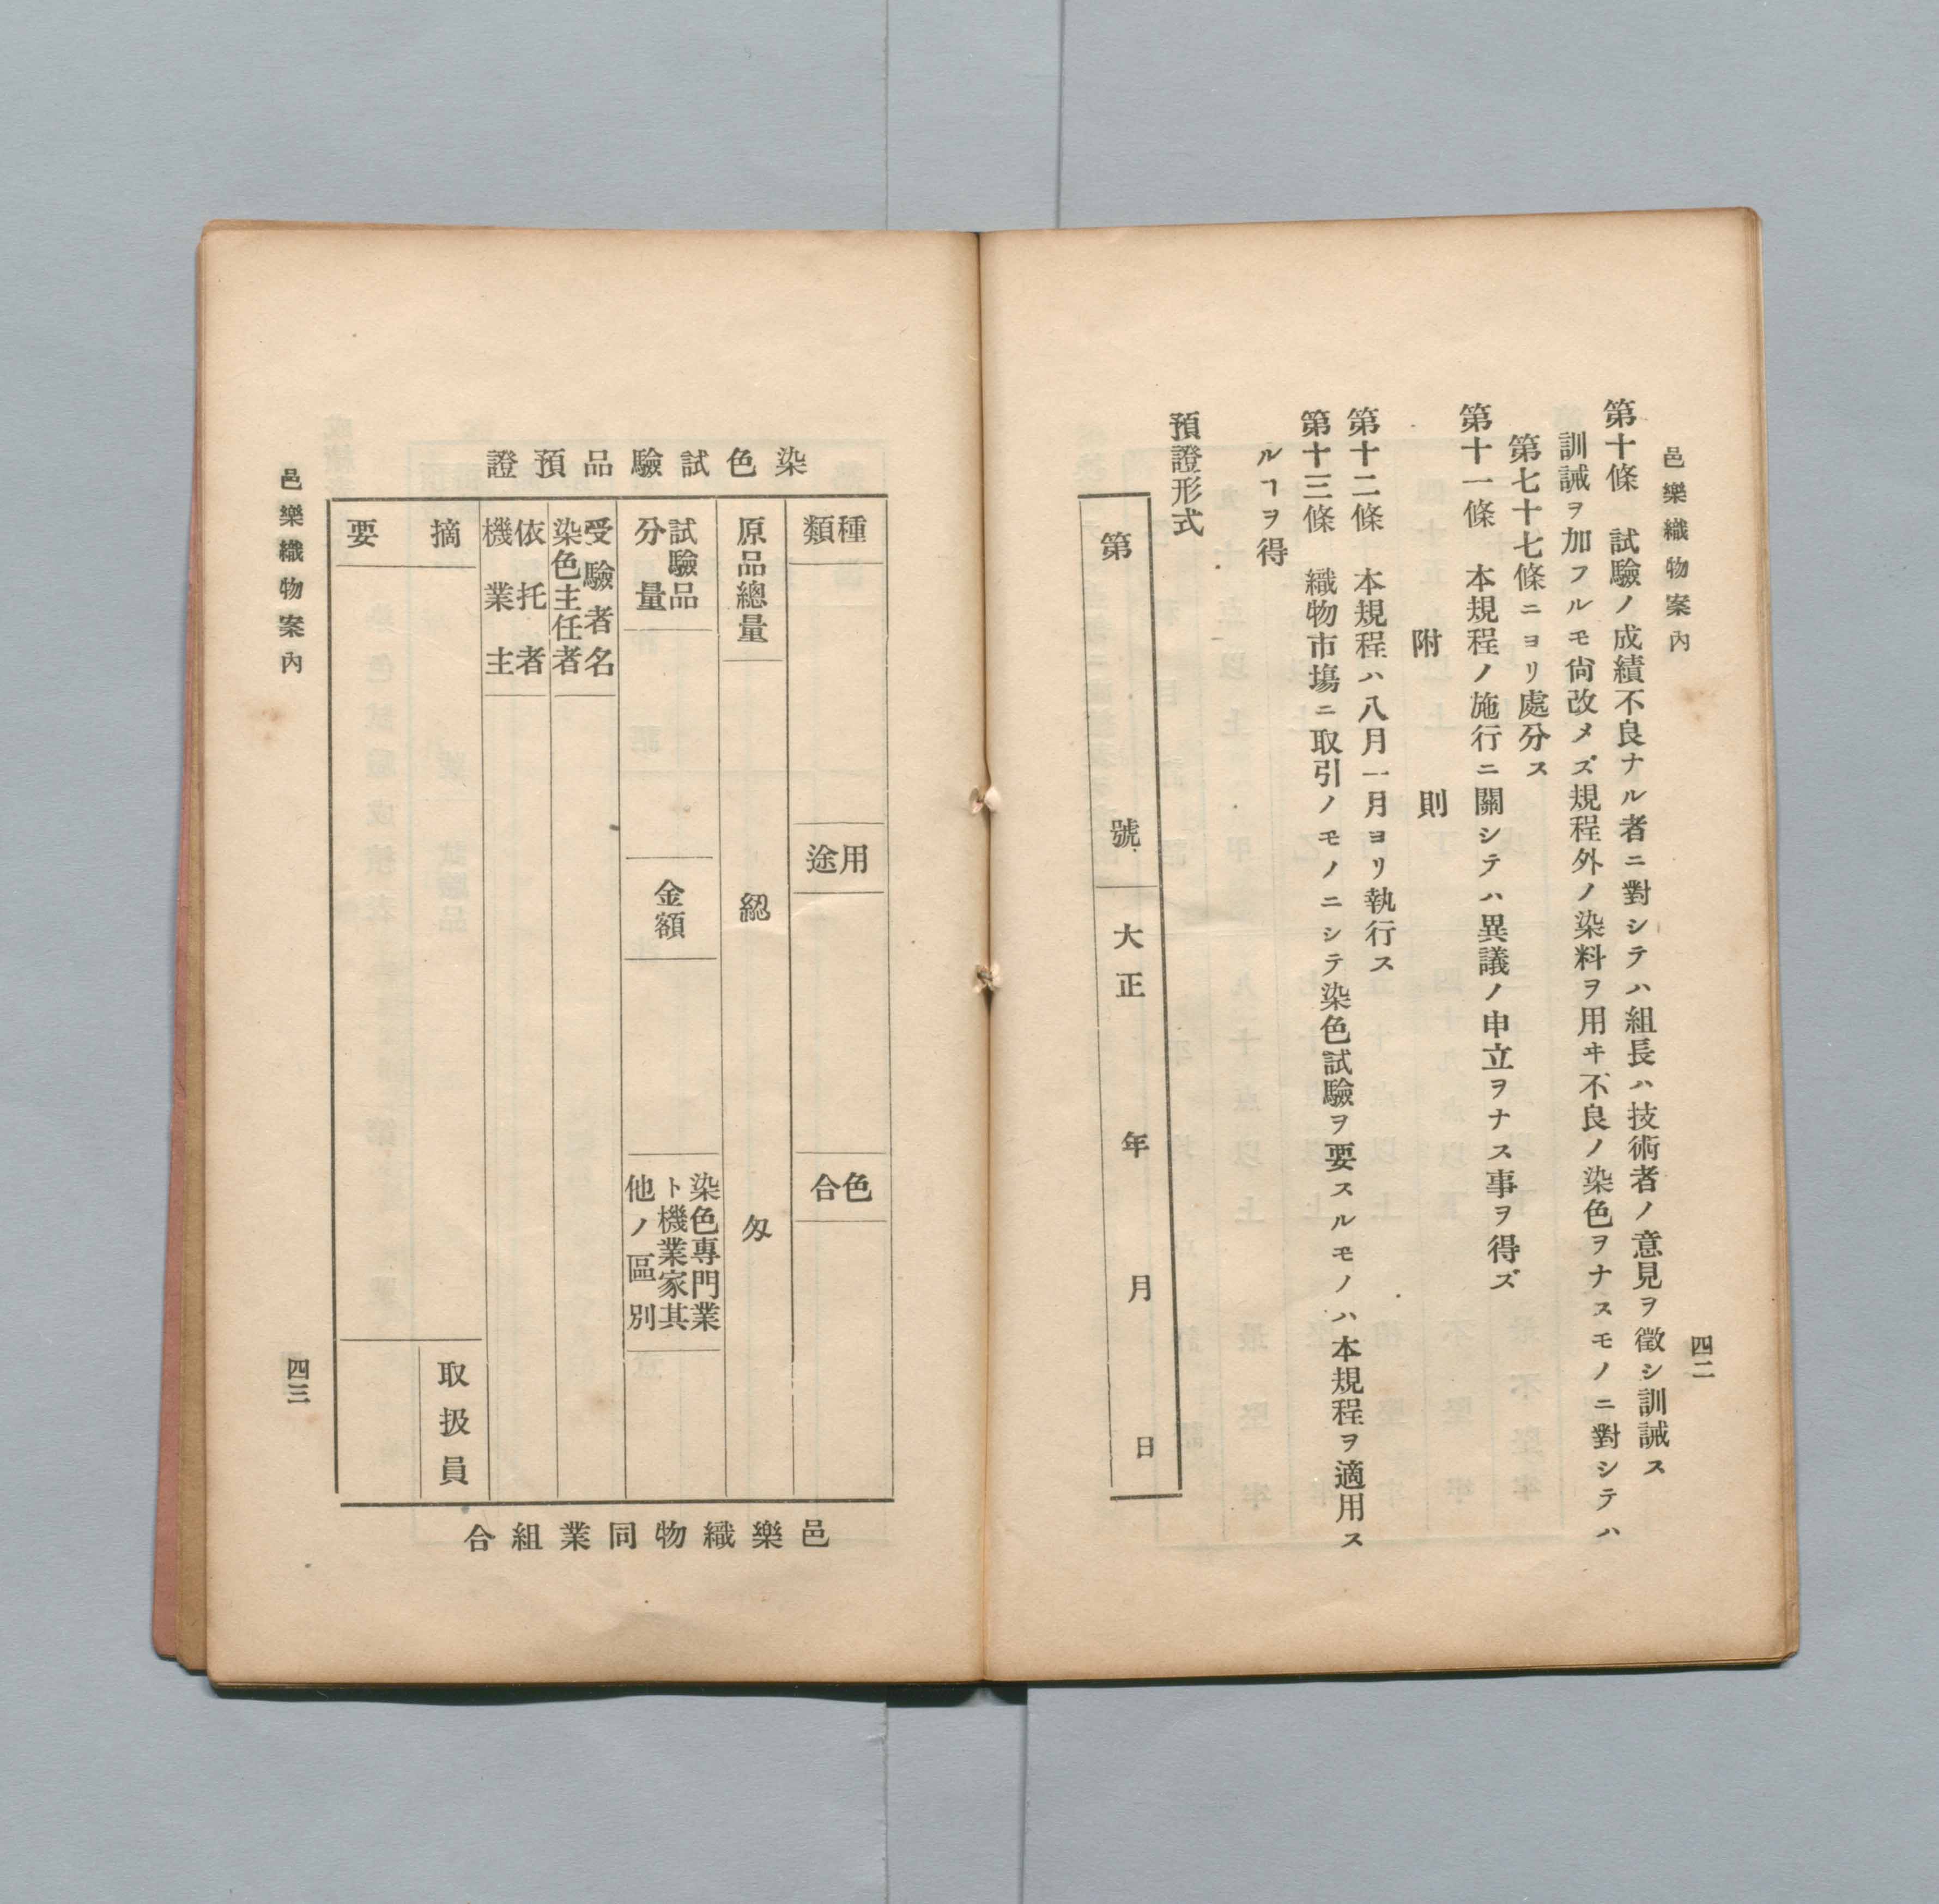 邑樂織物案內
四二
第十條　試驗ノ成績不良ナル者ニ對シテハ組長ハ技術者ノ意見ヲ徵シ訓誡ス
訓誡ヲ加フルモ尙改メズ規程外ノ染料ヲ用ヰ不良ノ染色ヲナスモノニ對シテハ
第七十七條ニヨリ處分ス
第十一條　本規程ノ施行ニ關シテハ異議ノ申立ヲナス事ヲ得ズ
附則
第十二條　本規程ハ八月一月ヨリ執行ス
第十三條　織物市塲ニ取引ノモノニシテ染色試驗ヲ要スルモノハ本規程ヲ適用ス
ルヿヲ得
預證形式
第　號　大正　年　月　日
染色試驗品預證
種類　用途　色合
原品總量　総　匁
試驗品分量　金額　染色專門業ト機業家其他ノ區別
受驗者名
染色主任者
依托者
機業主
摘要
取扱員
邑樂織物同業組合
邑樂織物案內
四三